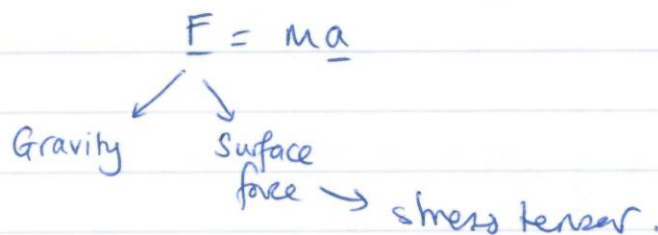 F = ma
Gravity
Surface
force → stress tensor.